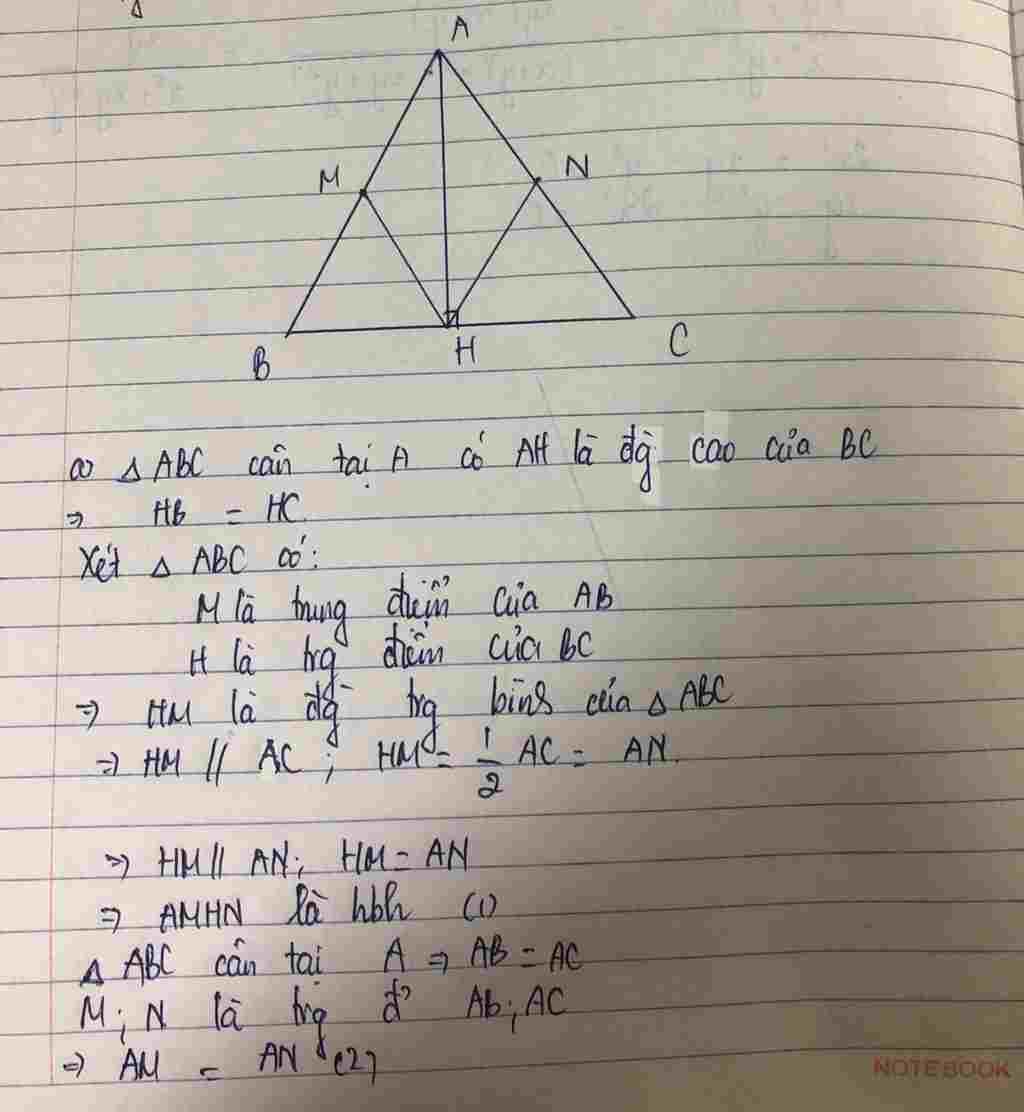 A
M
N
B
H
C
a) Δ ABC cân tại A có AH là đg̀ cao của BC
⇒ HB = HC.
Xét Δ ABC có:
M là trung điểm của AB
H là trg điểm của BC
⇒ HM là đg̀ trg bình của Δ ABC
⇒ HM // AC ; HM = 1/2 AC = AN.
⇒ HM // AN; HM = AN
⇒ AMHN là hbh (1)
Δ ABC cân tại A ⇒ AB = AC
M; N là trg đ' Ab; AC
⇒ AM = AN (2)
NOTEBOOK